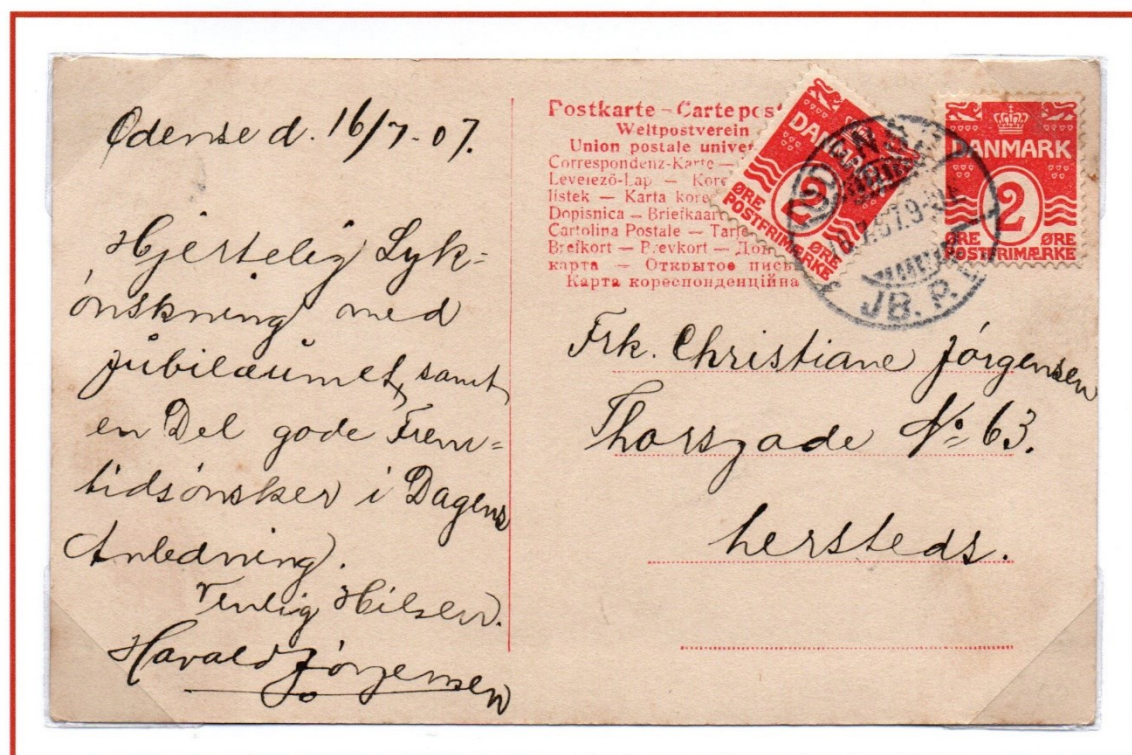 Odense d. 16/7-07.
Hjertelig Lyk=
ønskning med
Jubilæumet, samt
en Del gode Frem=
tidsønsker i Dagens
Anledning.
Venlig Hilsen.
Harald Jørgensen
Postkarte – Carte pos
Weltpostverein
Union postale unive
Correspondenz-Karte –
Levelező-Lap – Kore
listek – Karta kore
Dopisnica – Briefkaar
Cartolina Postale – Tarje
Brefkort – Brevkort – До
карта – Открытое пись
Карта кореспонденційна
DANMARK
2
ØRE ØRE
POSTFRIMÆRKE
DANMARK
2
ØRE ØRE
POSTFRIMÆRKE
ODENSE
JB. P.
Frk. Christiane Jørgensen
Thorsgade No 63.
hersteds.